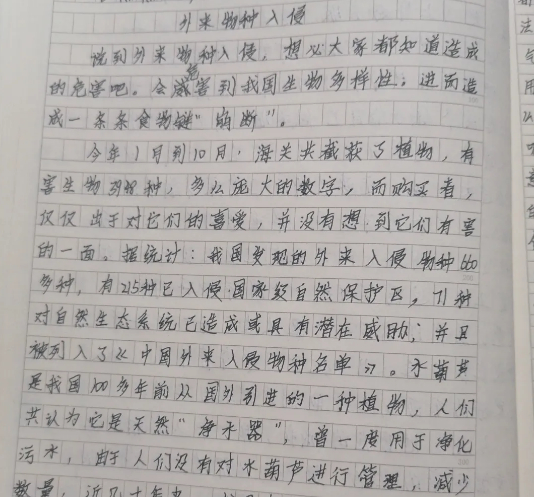 外来物种入侵
说到外来物种入侵,想必大家都知道造成
的危害吧。会威害到我国生物多样性,进而造
成一条条食物链"崩断"。
今年1月到10月,海关共截获了植物,有
害生物 种,多么庞大的数字,而购买者,
仅仅出于对它们的喜爱,并没有想到它们有害
的一面。据统计:我国发现的外来入侵物种660
多种,有215种已入侵国家级自然保护区。71种
对自然生态系统已造成或具有潜在威胁;并且
被列入了《中国外来入侵物种名单》。水葫芦
是我国100多年前从国外引进的一种植物,人们
共认为它是天然"净水器",曾一度用于净化
污水,由于人们没有对水葫芦进行管理,减少
数量,近几十年